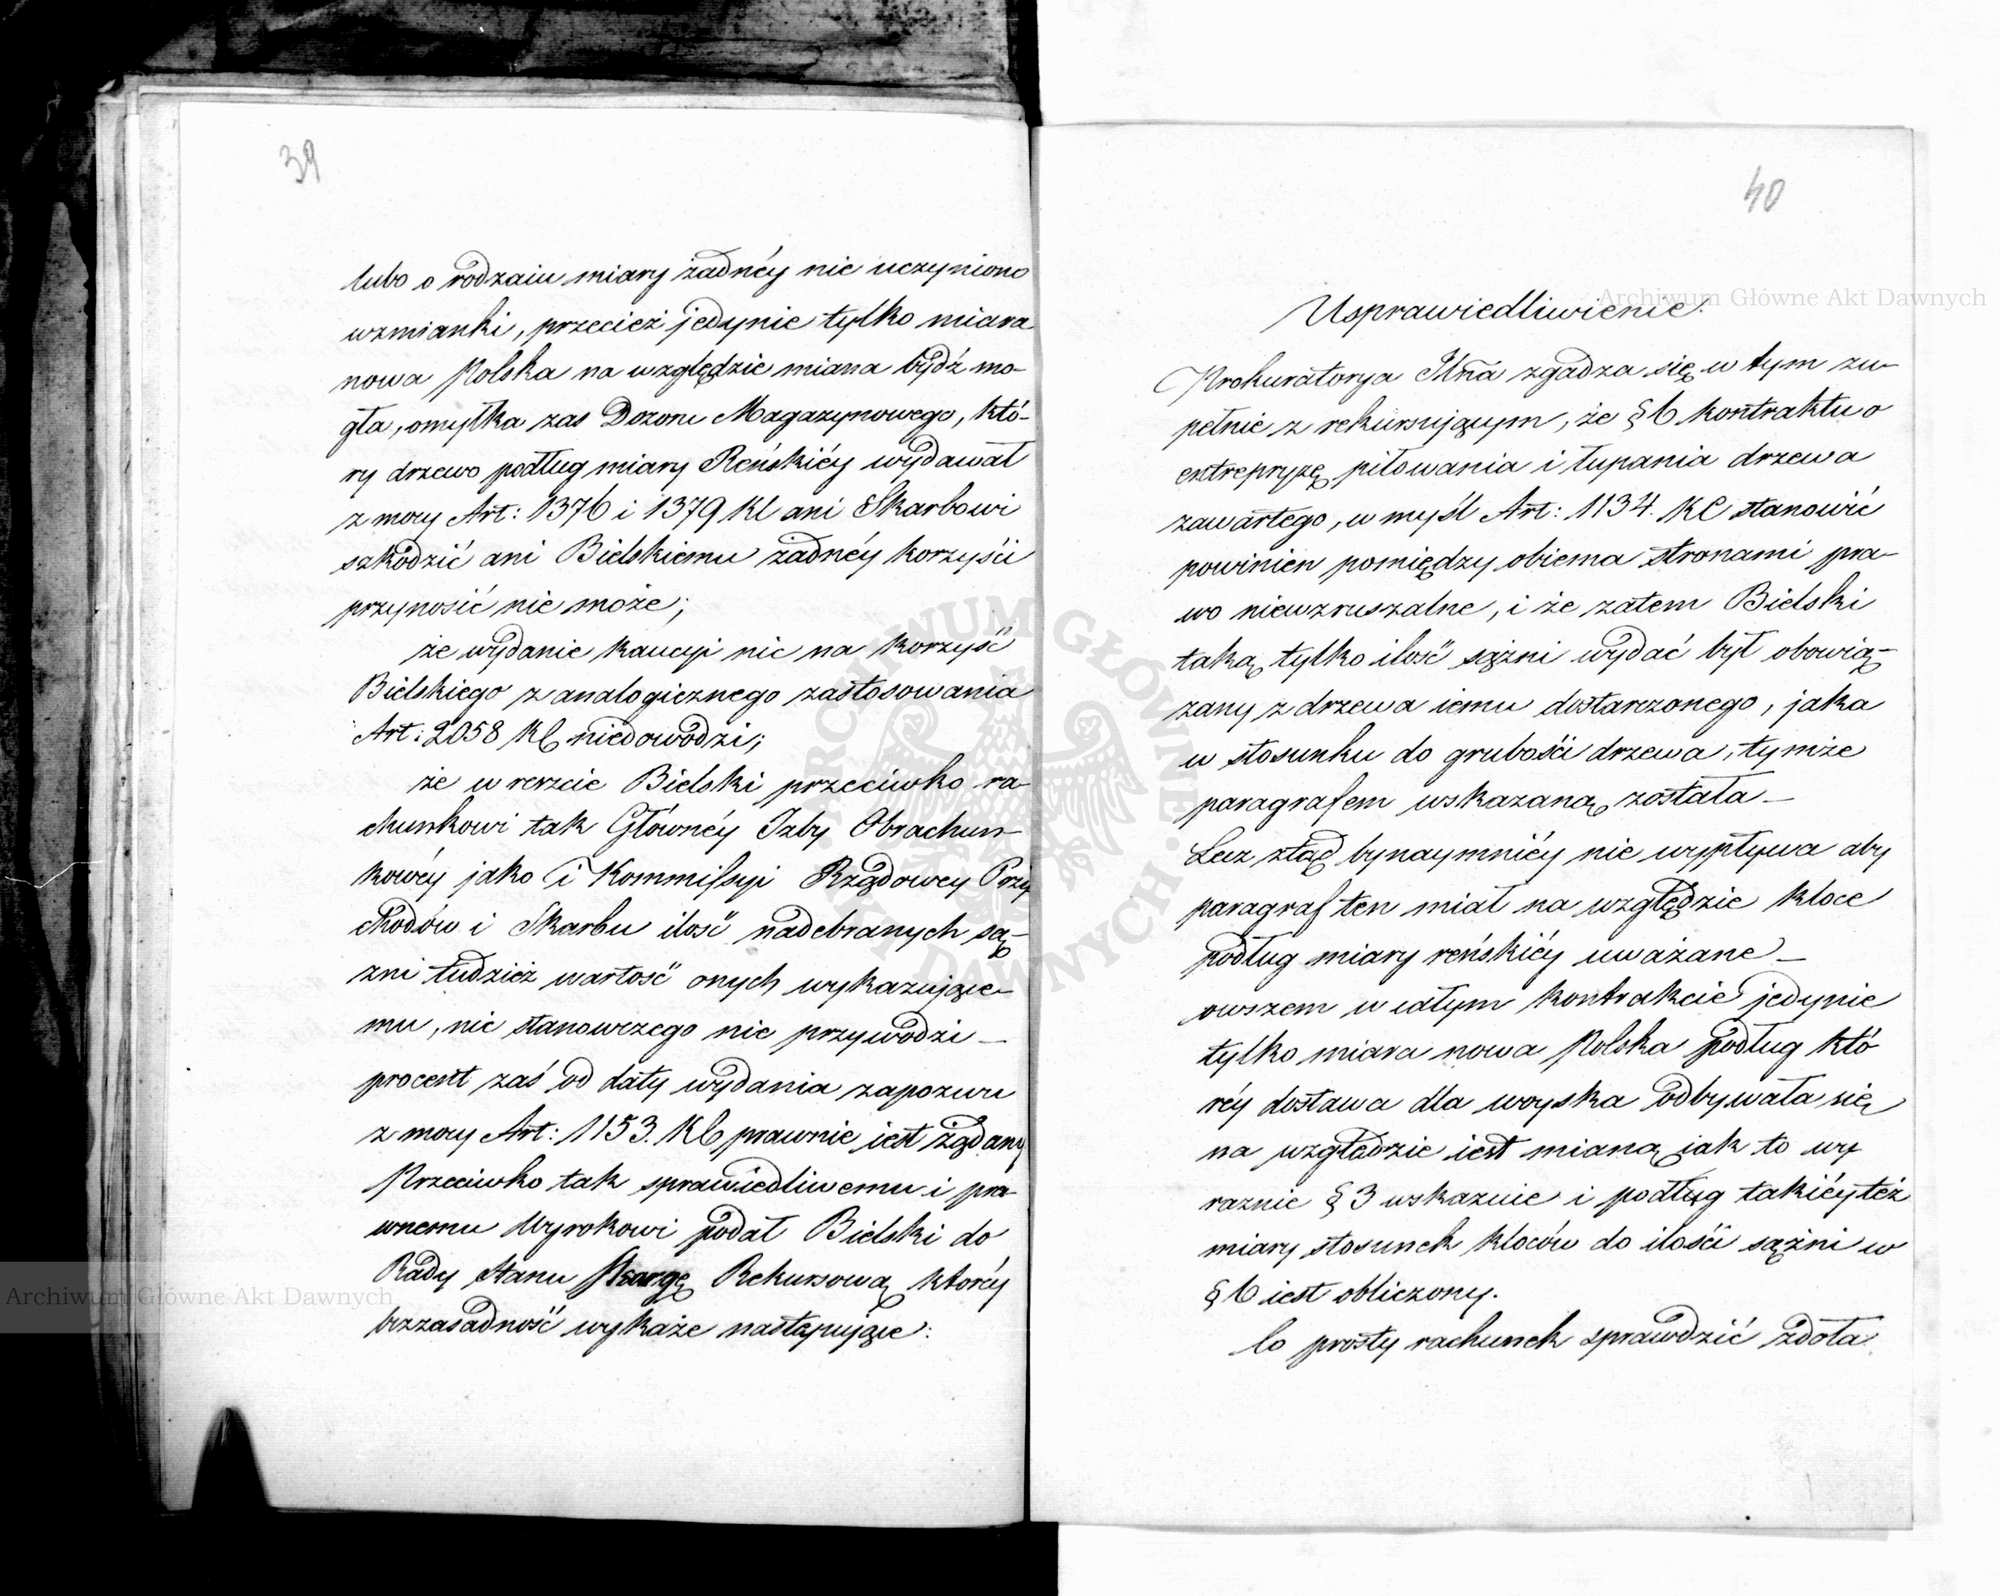 39
lubo o rodzaiu miary żadnéy nie uczyniono
wzmianki, przecież jedynie tylko miara
nowa Polska na względzie miana bydź mo-
gła, omyłka zaś Dozoru Magazynowego, któ-
ry drzewo podług miary Reńskiéy wydawał
z mocy Art: 1376 i 1379 KC ani Skarbowi
szkodzić ani Bielskiemu żadnéy korzyści
przynosić nie może;
że wydanie kaucyi nic na korzyść
Bielskiego z analogicznego zastosowania
Art: 2058 KC niedowodzi;
że w reszcie Bielski przeciwko ra-
chunkowi tak Główney Izby Obrachun-
kowéy jako i Kommissyi Rządowey Przy
chodów i Skarbu ilość nadebranych są-
żni tudzież wartość onych wykazujące-
mu, nic stanowczego nie przywodzi –
procent zaś od daty wydania zapozwu
z mocy Art: 1153. KC prawnie iest żądany
Przeciwko tak sprawiedliwemu i pra-
wnemu Wyrokowi podał Bielski do
Rady Stanu Skargę Rekursową któréy
bezzasadność wykaże następujące:
40
Usprawiedliwienie.
Prokuratorya Jlna zgadza się w tym zu-
pełnie z rekursującym, że § 6 kontraktu o
entrepryzę piłowania i łupania drzewa
zawartego, w myśl Art: 1134. KC stanowić
powinien pomiędzy obiema stronami pra-
wo niewzruszalne, i że zatem Bielski
taką tylko ilość sążni wydać był obowią-
zany z drzewa iemu dostarczonego, jaka
w stosunku do grubości drzewa, tymże
paragrafem wskazaną została –
Lecz ztąd bynaymniéy nie wypływa aby
paragraf ten miał na względzie kloce
podług miary reńskiéy uważane –
owszem w całym kontrakcie jedynie
tylko miara nowa Polska podług któ
réy dostawa dla woyska odbywała się
na względzie iest mianą jak to wy
raźnie § 3 wskazuie i podług takiéy też
miary stosunek kloców do ilości sążni w
§ 6 iest obliczony.
Co prosty rachunek sprawdzić zdoła.
Archiwum Główne Akt Dawnych
Archiwum Główne Akt Dawnych
ARCHIWUM GŁÓWNE AKT DAWNYCH